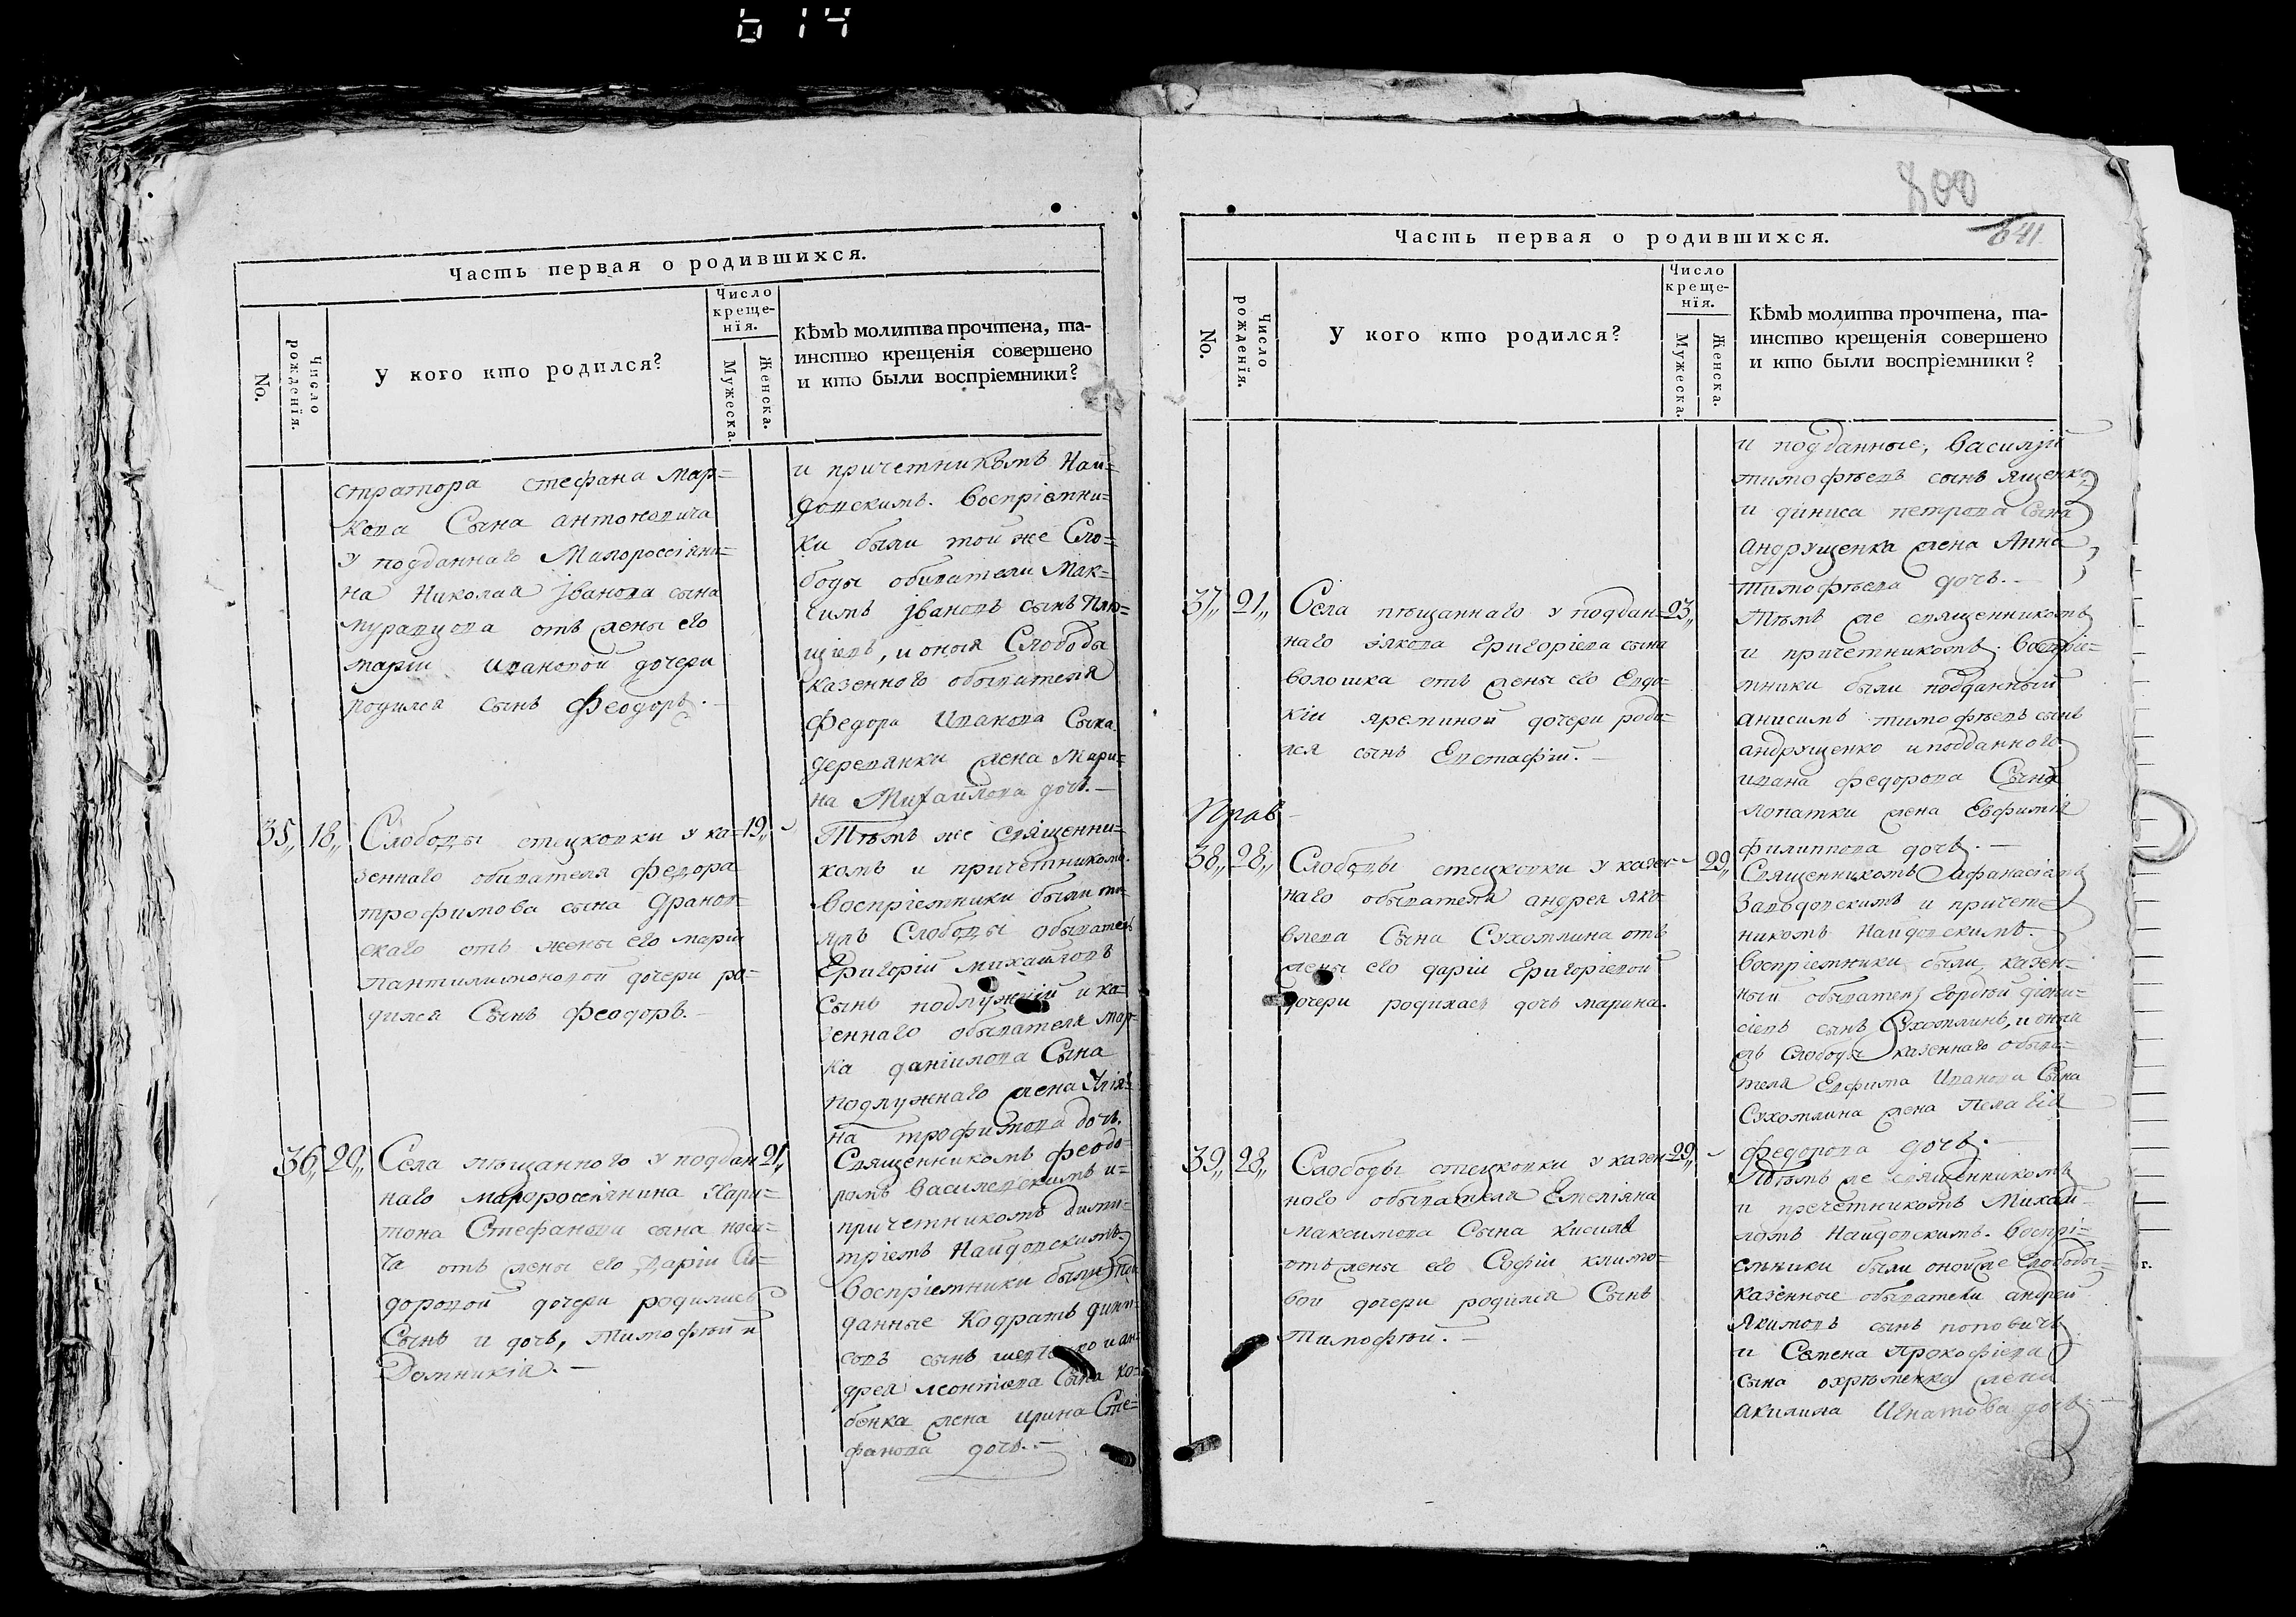 614
Часть первая о родившихся.
No.
Число рожденія.
У кого кто родился?
Число
креще-
нія.
Мужеска.
Женска.
Кѣмъ молитва прочтена, та-
инство крещенія совершено
и кто были воспріемники?
стратора стефана Мар-
кова Сына антоновича
у подданнаго Малороссіяни-
на Николая Іванова сына
муравцова отъ жены его
маріи ивановой дочери
родился сынъ Феодоръ. —
и причетникомъ Най-
довскимъ. воспріемни-
ки были той же Сло-
боды обиватели Мак-
симъ Івановъ сынъ
щіевъ, и оныя Слободы
казенного обывателя
Федора Иванова Сына
деревянки жена Мари-
на Михайлова дочь. —
35„ 18„ Слободы стецковки у ка- 19„
зеннаго обивателя федора
трофимова сына
скаго отъ жены его маріи
пантилимоновой дочери ро-
дился Сынъ Феодоръ. —
Тѣмъ же священни-
комъ и причетникомъ.
воспріемники были
Слободы обыватель
Григорій михайловъ
Сынъ подлужній и ка-
зеннаго обывателя мар-
ка даніилова Сына
подлужнаго жена Улія-
на трофимова дочь.
36„ 20„ Села пѣщанного у поддан- 21„
наго малороссіянина Хари-
тона Стефанова сына носа-
ча отъ жены его Даріи Си-
доровой дочери родились
Сынъ и дочь, тимофѣй и
Домникія. —
Священникомъ феодо-
ромъ василевскимъ и
причетникомъ дими-
тріемъ Найдовскимъ
воспріемники были под-
данные Кодратъ дини-
совъ сынъ шевченко и ан-
дрея леонтіева Сына ко-
бенка жена ирина Сте-
фанова дочь. —
800
641
Часть первая о родившихся.
No.
Число рожденія.
У кого кто родился?
Число
креще-
нія.
Мужеска.
Женска.
Кѣмъ молитва прочтена, та-
инство крещенія совершено
и кто были воспріемники?
и подданные, василій
тимофѣевъ сынъ ященко
и диниса петрова Сына
андрущенка жена Анна
тимофѣева дочь. —
37„ 21„ Села пѣщаннаго у поддан- 23„
наго якова григоріева сына
волошка отъ жены его Евдо-
кіи яреминой дочери роди-
лся сынъ Евстафій. —
Тѣмъ же священникомъ
и причетникомъ. воспріе-
мники были подданный
анисимъ тимофѣевъ сынъ
андрущенко и подданного
ивана федорова Сына
лопатки жена Евфимія
филиппова дочь. —
Прав
38„ 28„ Слободы стецковки у казен- 29„
наго обывателя андрея яко-
влева Сына Сухомлина отъ
жены его даріи Григоріевой
дочери родилась дочь марина.
Священникомъ афанасіемъ
Заводовскимъ и причет-
никомъ Найдовскимъ.
воспріемники были, казен-
ный обыватель Гордѣй діони-
сіевъ сынъ Сухомлинъ, и оныя
жъ слободы казеннаго обыва-
теля Евфима Иванова Сына
Сухомлина жена Пелагія
федорова дочь. —
39„ 28„ Слободы стецковки у казен- 29„
ного обывателя Емеліяна
максимова Сына кисиля
отъ жены его Софіи климо-
вой дочери родился Сынъ
Тимофѣй. —
Тѣмъ же священникомъ
и пречетникомъ Михаи-
ломъ Найдовскимъ. воспрі-
емники были оной же Слободы
казенные обыватели андрей
Якимовъ сынъ поповичъ
и Семена Прокофіева
сына охрѣменка жена
Акилина Игнатова дочь —